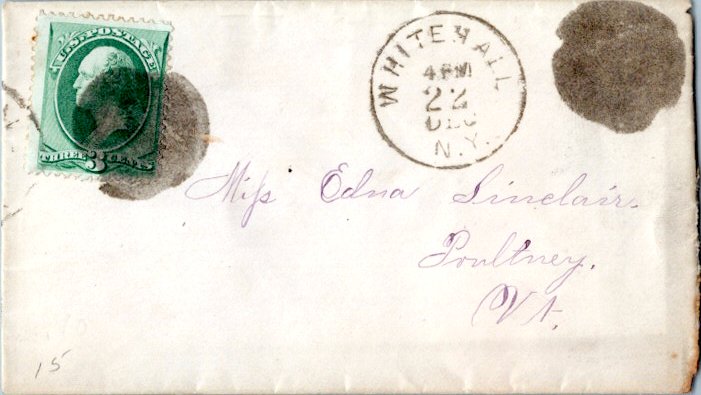 U.S. POSTAGE
THREE 3 CENTS
WHITEHALL
4 PM
22
DEC
N.Y.
Miss Edna Sinclair.
Poultney.
Vt.
15